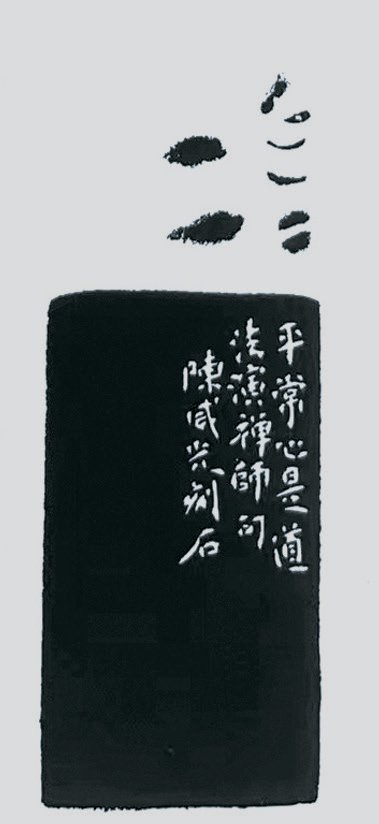 平常心是道
法演禪師句
陳威光刻石